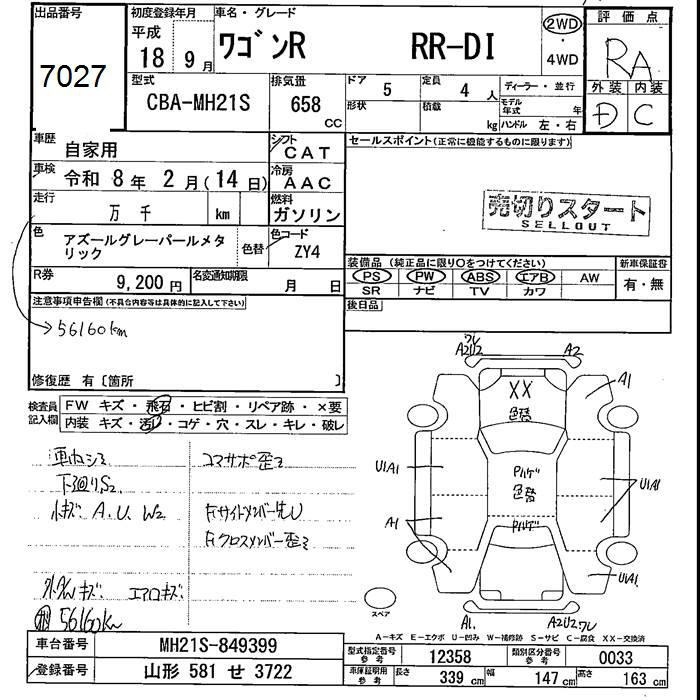 出品番号
7027
初度登録年月
平成
18年 9月
車名・グレード
ワゴンR RR-DI
2WD
・
4WD
評価点
RA
外装 内装
D C
型式
CBA-MH21S
排気量
658
CC
ドア
5
定員
4人
ディーラー・並行
形状
積載
kg
モデル年式 年
ハンドル 左・右
車歴
自家用
シフト
CAT
車検
令和 8年 2月(14日)
冷房
AAC
走行
万 千 km
燃料
ガソリン
色
アズールグレーパールメタリック
色替
色コード
ZY4
R券
9,200円
名変通知期限
月 日
セールスポイント(正常に機能するものに限ります)
売切りスタート
SELLOUT
装備品(純正品に限り○をつけてください)
PS PW ABS エアB AW
SR ナビ TV カワ
新車保証書
有・無
後日品
注意事項申告欄(不具合内容等は具体的に記入して下さい)
→56160km
修復歴 有〔箇所 〕
検査員記入欄
FW キズ・飛石・ヒビ割・リペア跡・×要
内装 キズ・汚れ・コゲ・穴・スレ・キレ・破レ
下廻りS2
小キズ A.U W2
コマサポ歪ミ
Fクロスメンバー歪ミ
エアロキズ
56160km
A2U2 ワレ
A2
A1
XX
色替
Pハゲ
色替
Pハゲ
U1A1
U1A1
A1
U1A1
A1
A2U2 ワレ
スペア
A-キズ E-エクボ U-凹み W-補修跡 S-サビ C-腐食 XX-交換済
車台番号
MH21S-849399
登録番号
山形 581 せ 3722
型式指定番号 参考
12358
類別区分番号 参考
0033
車庫証明用 参考
長さ 339cm 幅 147cm 高さ 163cm